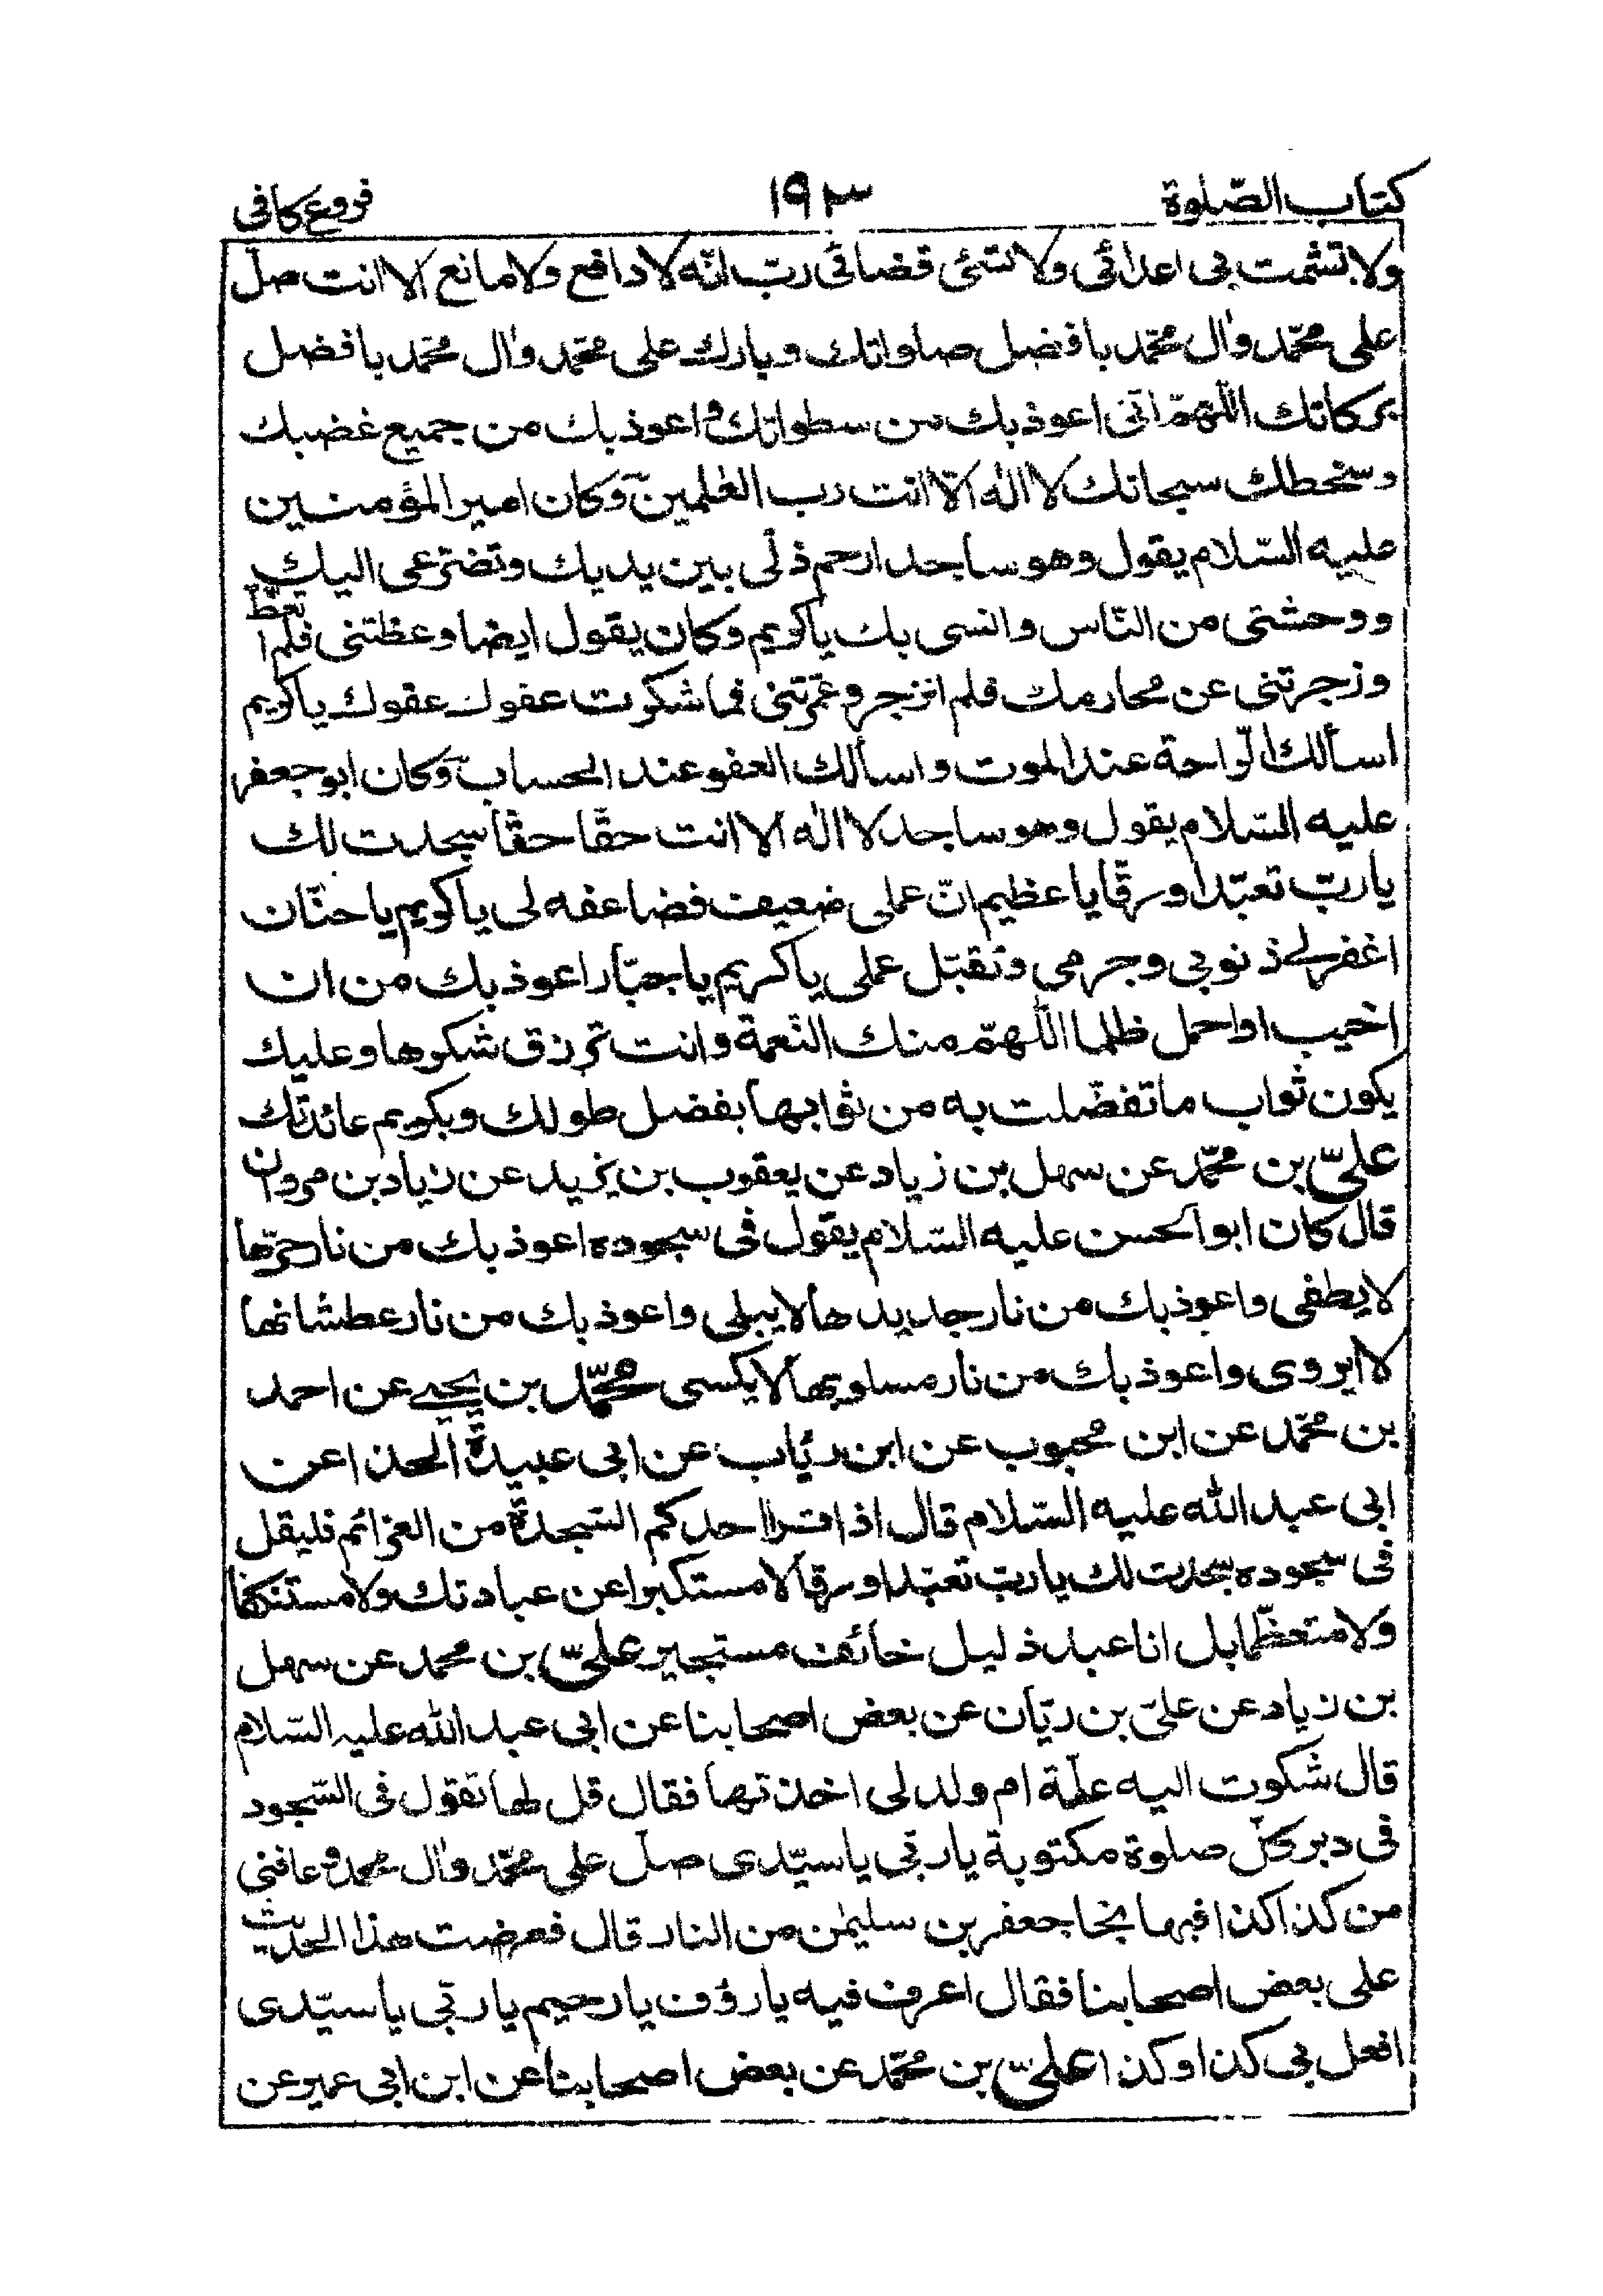 كتاب الصّلوة ١٩٣ فروع كافى
ولا تشمت بى اعدائى ولا تسئ قضائى ربّ انّه لا دافع ولا مانع الا انت صلّ
على محمّد واٰل محمّد بافضل صلواتك وبارك على محمّد واٰل محمّد بافضل
بركاتك اللّهمّ انى اعوذ بك من سطواتك واعوذ بك من جميع غضبك
وسخطك سبحانك لا اله الّا انت رب العٰلمين وكان امير المؤمنين
عليه السّلام يقول وهو ساجد ارحم ذلّى بين يديك وتضرّعى اليك
ووحشتى من النّاس وانسى بك ياكريم وكان يقول ايضا وعظتنى فلم اتعظ
وزجرتنى عن محارمك فلم انزجر وغمرتنى فما شكرت عفوك عفوك ياكريم
اسألك الرّاحة عند الموت واسألك العفو عند الحساب وكان ابو جعفر
عليه السّلام يقول وهو ساجد لا اله الا انت حقّا حقّا سجدت لك
يا ربّ تعبّدا ورقّا يا عظيم انّ عملى ضعيف فضاعفه لى ياكريم يا حنّان
اغفر لے ذنوبى وجرمى وتقبّل عملى ياكريم يا جبّار اعوذ بك من ان
اخيب او احمل ظلما اللّهمّ منك النّعمة وانت ترزق شكرها وعليك
يكون ثواب ما تفضّلت به من ثوابها بفضل طولك وبكريم عائدتك
علىّ بن محمّد عن سهل بن زياد عن يعقوب بن يزيد عن زياد بن مروان
قال كان ابو الحسن عليه السّلام يقول فى سجوده اعوذ بك من نار حرّها
لا يطفى واعوذ بك من نار جديدها لا يبلى واعوذ بك من نار عطشانها
لا يروى واعوذ بك من نار مسلوبها لا يكسى محمّد بن يحيے عن احمد
بن محمّد عن ابن محبوب عن ابن رئاب عن ابى عبيدة الحذاء عن
ابى عبد الله عليه السّلام قال اذا قرا احدكم السّجدة من العزائم فليقل
فى سجوده سجدت لك يا ربّ تعبّدا ورقّا لا مستكبرا عن عبادتك ولا مستنكفا
ولا متعظّما بل انا عبد ذليل خائف مستجير علىّ بن محمد عن سهل
بن زياد عن علىّ بن ريّان عن بعض اصحابنا عن ابى عبد الله عليه السّلام
قال شكوت اليه علّة ام ولد لى اخذتها فقال قل لها تقول فى السّجود
فى دبر كلّ صلوة مكتوبة يا ربّى يا سيّدى صلّ على محمّد واٰل محمد وعافنى
من كذا كذا فبها نجا جعفر بن سليمٰن من النار قال فعرضت هذا الحديث
على بعض اصحابنا فقال اعرف فيه يا رؤف يا رحيم يا ربّى يا سيّدى
افعل بى كذا وكذا علىّ بن محمّد عن بعض اصحابنا عن ابن ابى عمير عن